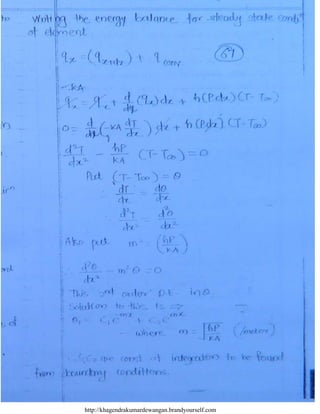 Writing the energy balance for steady state condn
of element
qx = (qx+dx) + qconv (64)
-KA
qx = qx + d/dx (qx) dx + h(Pdx)(T-T∞)
0 = d/dx (-KA dT/dx) dx + h(Pdx)(T-T∞)
d²T/dx² - hP/KA (T-T∞) = 0
Put (T-T∞) = θ
∴ dT/dx = dθ/dx
d²T/dx² = d²θ/dx²
Also put m² = (hP/KA)
∴ d²θ/dx² - m²θ = 0
This 2nd order D.E. in θ
Solution to this is ⇒
θ = C1 e^-mx + C2 e^mx
- where m = √hP/KA (/meters)
are const of integration to be found
from boundary conditions.
http://khagendrakumardewangan.brandyourself.com